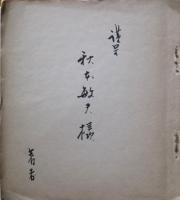 謹呈
秋本敏夫様
著者